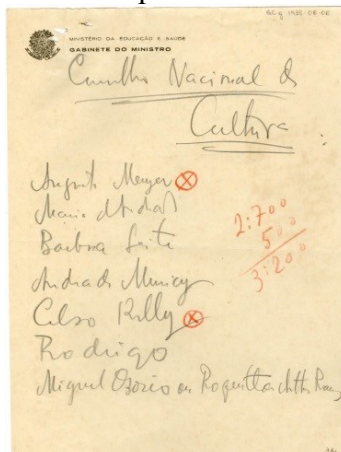 GC g 1935.08.06
MINISTÉRIO DA EDUCAÇÃO E SAÚDE
GABINETE DO MINISTRO
Conselho Nacional de
Cultura
Augusto Meyer
Mario de Andrade
Barbosa Leite
Andrade Muricy
Celso Kelly
Rodrigo
Miguel Ozorio ou Roquette
2:700
500
3:200